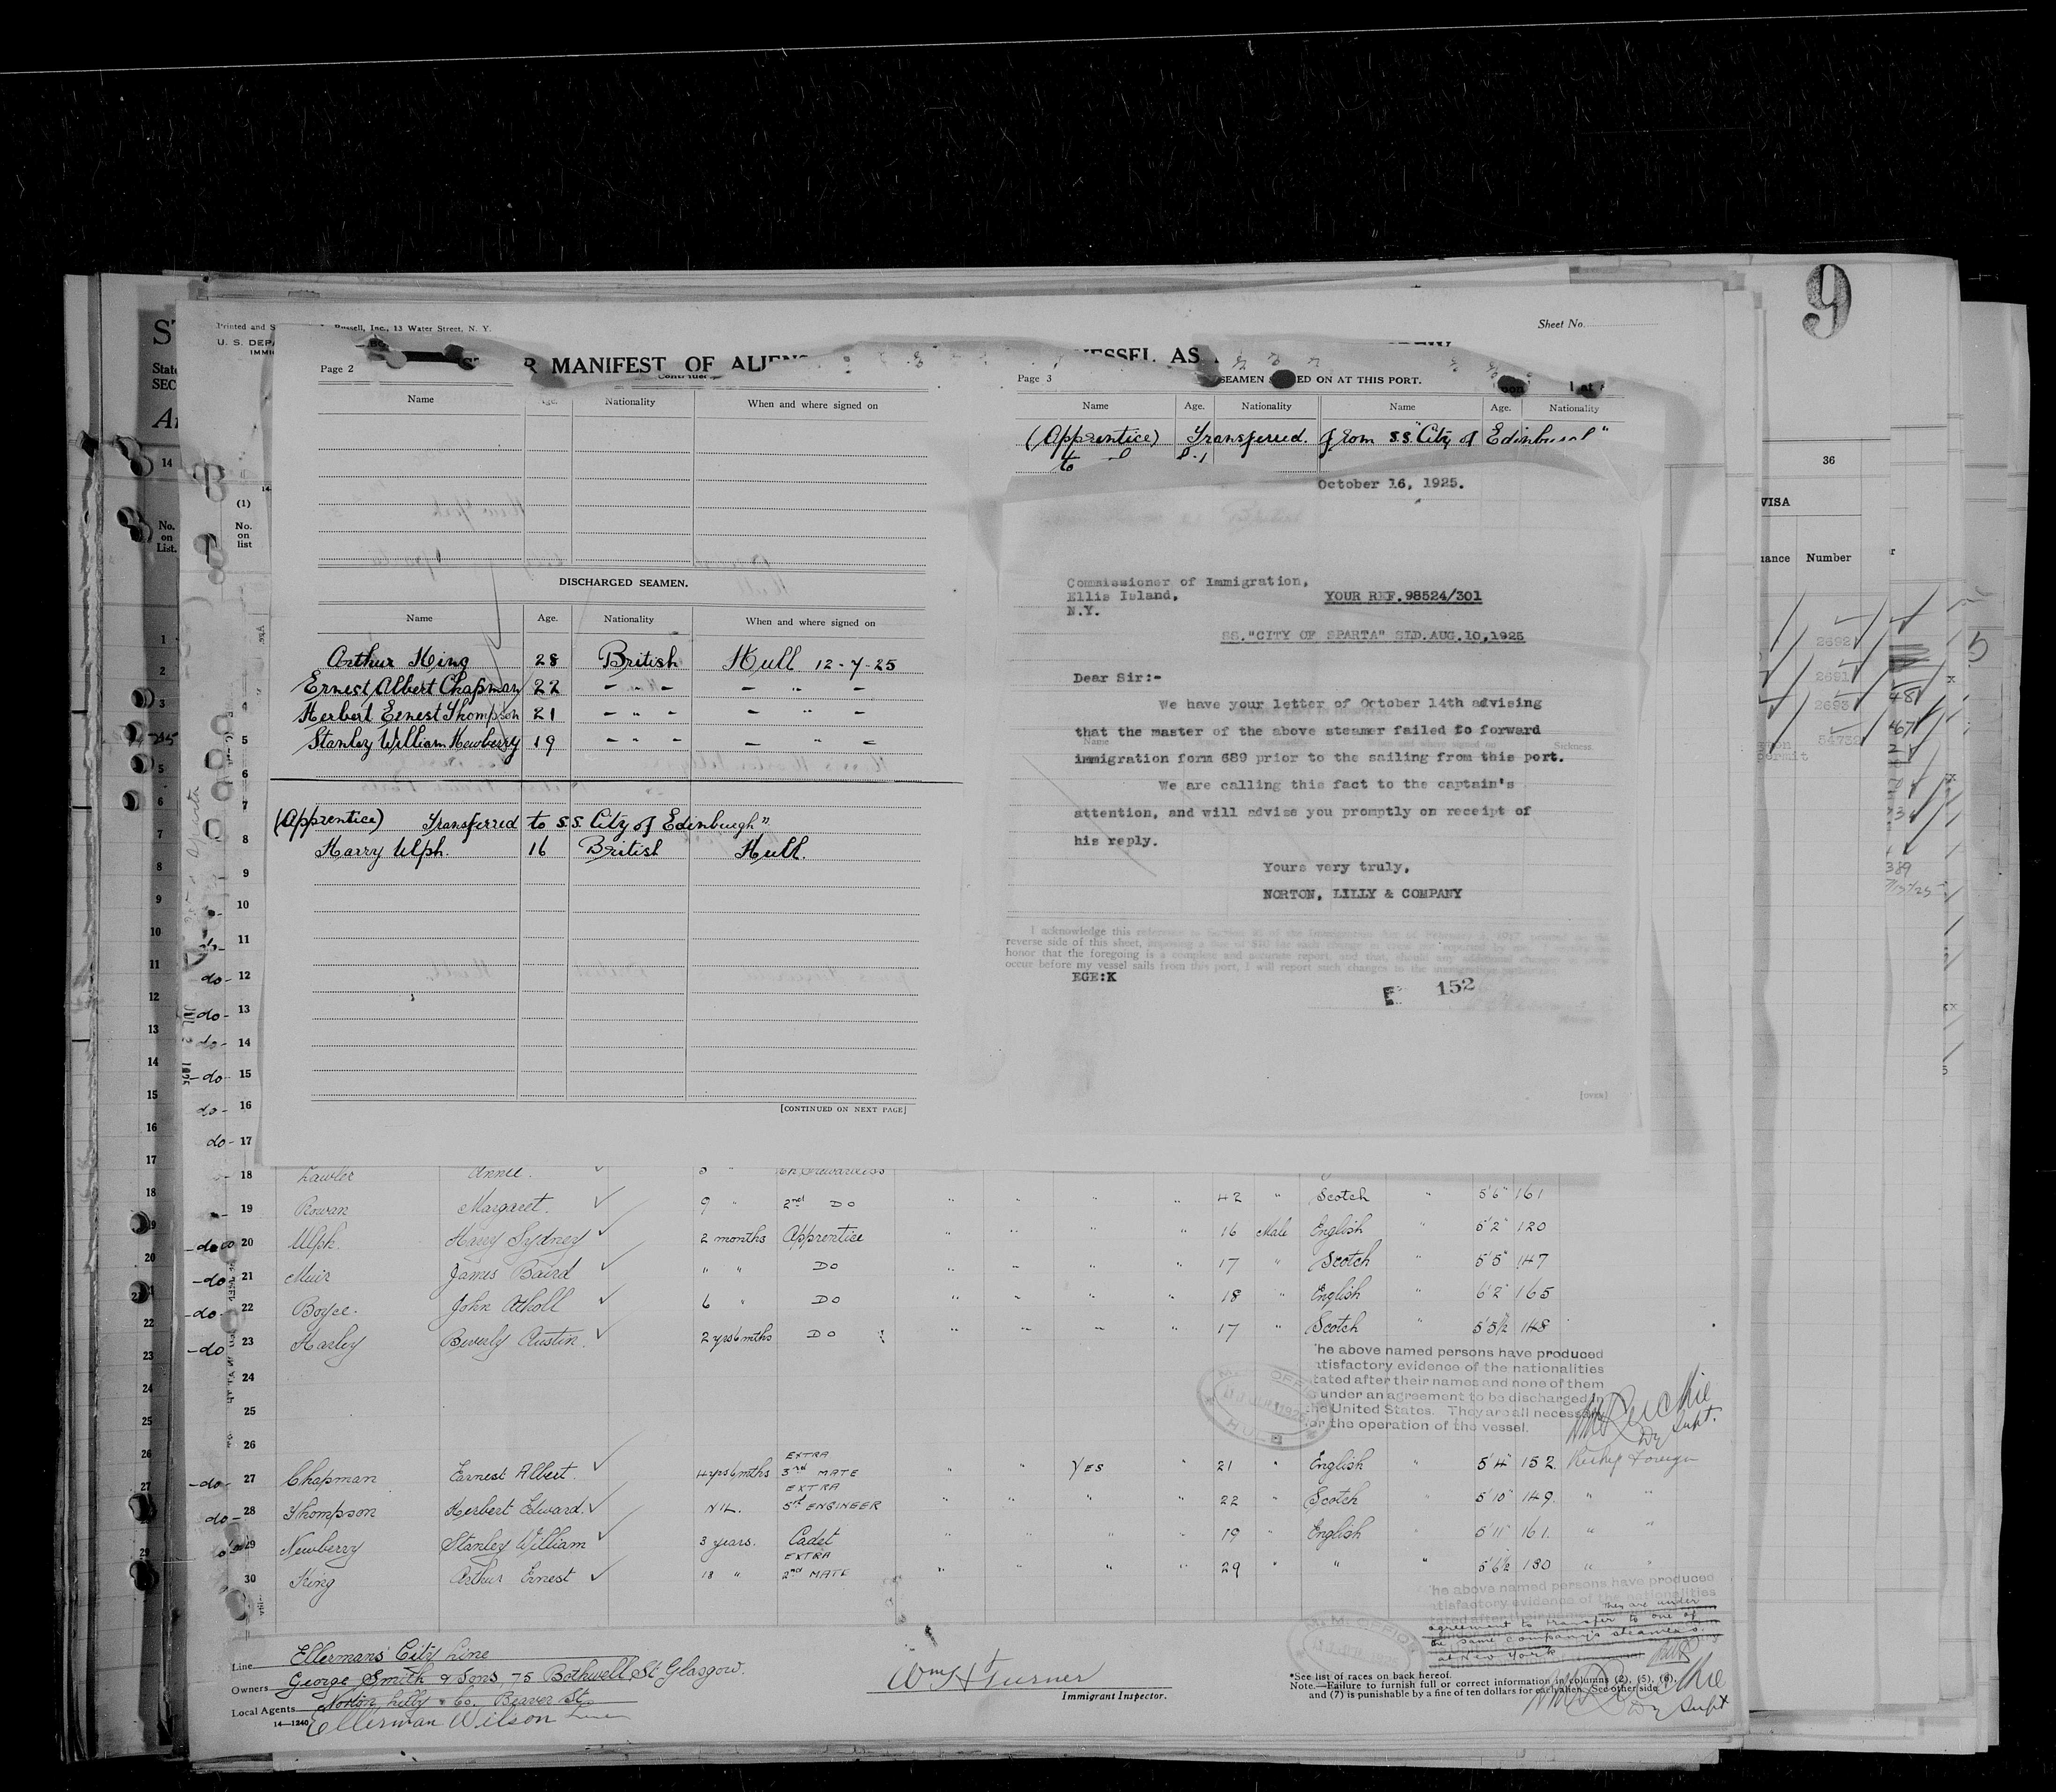 9
Printed and S Russell, Inc., 13 Water Street, N. Y.
Sheet No.
U. S. DEPA
IMMIG
MANIFEST OF ALIENS
VESSEL AS
Page 2
Continued
Name Age. Nationality When and where signed on
DISCHARGED SEAMEN.
Name Age. Nationality When and where signed on
Arthur King 28 British Hull 12-7-25
Ernest Albert Chapman 22 - " - - " -
Herbert Ernest Thompson 21 - " - - " -
Stanley William Newberry 19 - " - - " -
(Apprentice) Transferred to S.S. City of Edinburgh"
Harry Ulph. 16 British Hull.
[CONTINUED ON NEXT PAGE]
Page 3
SEAMEN S ED ON AT THIS PORT.
Name Age. Nationality Name Age. Nationality
(Apprentice) Transferred. from S.S. "City of Edinburgh"
to
October 16, 1925.
Commissioner of Immigration,
Ellis Island, YOUR REF.98524/301
N.Y.
SS."CITY OF SPARTA" SLD.AUG.10,1925
Dear Sir:-
We have your letter of October 14th advising
that the master of the above steamer failed to forward
immigration form 689 prior to the sailing from this port.
We are calling this fact to the captain's
attention, and will advise you promptly on receipt of
his reply.
Yours very truly,
NORTON, LILLY & COMPANY
I acknowledge this reference to Section 36 of the Immigration Act of February 5, 1917, printed on the
reverse side of this sheet, imposing a fine of $10 for each change in crew not reported by me. I certify on
honor that the foregoing is a complete and accurate report, and that, should any additional changes in crew
occur before my vessel sails from this port, I will report such changes to the immigration authorities
EGE:K
E 152
[OVER]
36
VISA
Number
2692
2691
2693
54732
permit
(1)
No. on list
No. on List.
18 Lawler Annie. 5 " Ch. Stewardess
19 Rowan Margaret. 9 " 2nd DO " " " " 42 " Scotch " 5'6" 161
20 Ulph. Harry Sydney 2 months Apprentice " " " " 16 Male English " 5'2" 120
21 Muir James Baird " " DO " " " " 17 " Scotch " 5'5" 147
22 Boyce. John Atholl 6 " DO " " " " 18 " English " 6'2" 165
23 Harley Beverly Austin. 2 yrs 6 mths DO " " " " 17 " Scotch " 5'5½ 148
24
25
26
he above named persons have produced
atisfactory evidence of the nationalities
tated after their names and none of them
under an agreement to be discharged in
the United States. They are all necessary
or the operation of the vessel.
Dy Supt.
27 Chapman Earnest Albert. 4 yrs 6 mths EXTRA 3rd MATE " " YES " 21 " English " 5'4" 152.
28 Thompson Herbert Edward. NIL. EXTRA 5th ENGINEER " " " " 22 " Scotch " 5'10" 149. " "
29 Newberry Stanley William 3 years. Cadet " " " " 19 " English " 5'11" 161. " "
30 King Arthur Ernest 18 " EXTRA 2nd MATE " " " " 29 " " " 5'6½ 180 " "
he above named persons have produced
atisfactory evidence of the nationalities
They are under
agreement to transfer to one of
the same company's steamers.
at New York
Line Ellermans' City Line
Owners George Smith & Sons, 75 Bothwell St Glasgow.
Local Agents Norton, Lilly & Co. Beaver St.
14—1240 Ellerman Wilson Line
Wm H Turner
Immigrant Inspector.
*See list of races on back hereof.
Note.—Failure to furnish full or correct information in columns (2), (5), (6),
and (7) is punishable by a fine of ten dollars for each alien. See other side.
Dy Supt